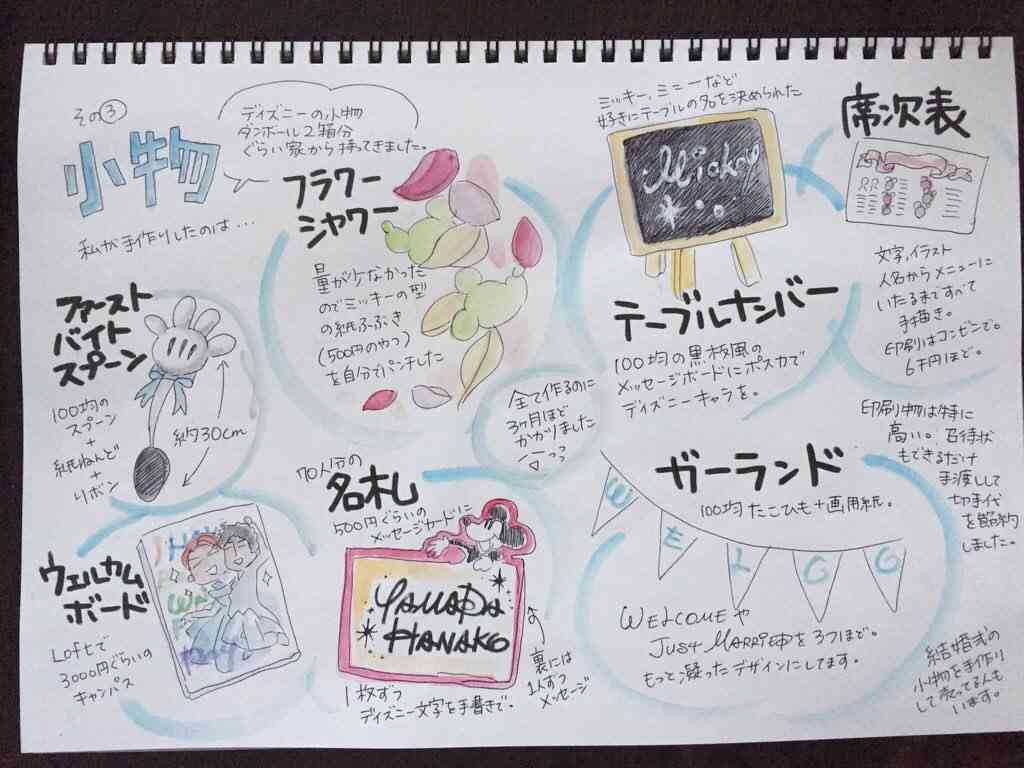 その③
小物
ディズニーの小物
ダンボール2箱分
ぐらい家から持ってきました。
私が手作りしたのは…
ファースト
バイト
スプーン
100均の
スプーン
+
紙ねんど
+
リボン
約30cm
フラワー
シャワー
量が少なかった
のでミッキーの型
の紙ふぶき
(500円のやつ)
を自分でパンチした
ミッキー、ミニーなど
好きにテーブルの名を決められた
Mickey
テーブルナンバー
100均の黒板風の
メッセージボードにポスカで
ディズニーキャラを。
席次表
文字、イラスト
人名からメニューに
いたるまですべて
手描き。
印刷はコンビニで。
6千円ほど。
全て作るのに
3ヶ月ほど
かかりました
ウェルカム
ボード
Loftで
3000円ぐらいの
キャンバス
70人分の
名札
500円ぐらいの
メッセージカードに
YAMADA
HANAKO
1枚ずつ
ディズニー文字を手書きで。
裏には
1人ずつ
メッセージ
ガーランド
100均たこひも+画用紙。
WELCO
WELCOMEや
JUST MARRIEDを3つほど。
もっと凝ったデザインにしてます。
印刷物は特に
高い。招待状
もできるだけ
手渡しして
切手代
を節約
しました。
結婚式の
小物を手作り
して売ってる人も
います。